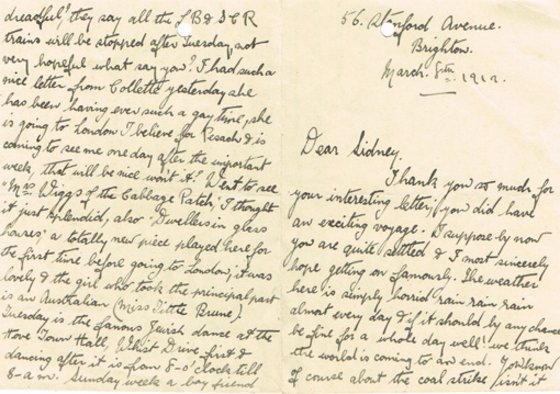 56. Stanford Avenue.
Brighton.
March. 8th 1912.
Dear Sidney.
Thank you so much for
your interesting letter, you did have
an exciting voyage. I suppose by now
you are quite settled & I most sincerely
hope getting on famously. The weather
here is simply horrid rain rain rain
almost every day & if it should by any chance
be fine for a whole day well! we think
the world is coming to an end. You know
of course about the coal strike isn't it
dreadful? they say all the L B & S C R
trains will be stopped after Tuesday, not
very hopeful what say you? I had such a
nice letter from Collette yesterday she
has been having ever such a gay time, she
is going to London I believe for Pesach & is
coming to see me one day after the important
week, that will be nice won't it? Went to see
"Mrs Wiggs of the Cabbage Patch," I thought
it just splendid, also "Dwellers in glass
houses" a totally new piece played here for
the first time before going to London, it was
lovely & the girl who took the principal part
is an Australian (Miss Tittle Brune)
Tuesday is the famous Jewish dance at the
Hove Town Hall, Whist Drive first &
dancing after it is from 8-o'clock till
8-a.m. Sunday week a boy friend